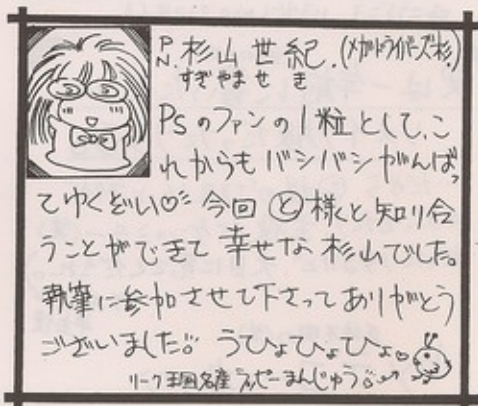 P.N. 杉山 世紀.(メガドライバーズ杉)
すぎやま せ き
PSのファンの1粒として、こ
れからもバシバシがんばっ
てゆくぞい♡ 今回 と 様くと知り合
うことができて幸せな杉山でした。
執筆に参加させて下さってありがとう
ございました。うひょひょひょ
リーク王国名産 ラッピーまんじゅう